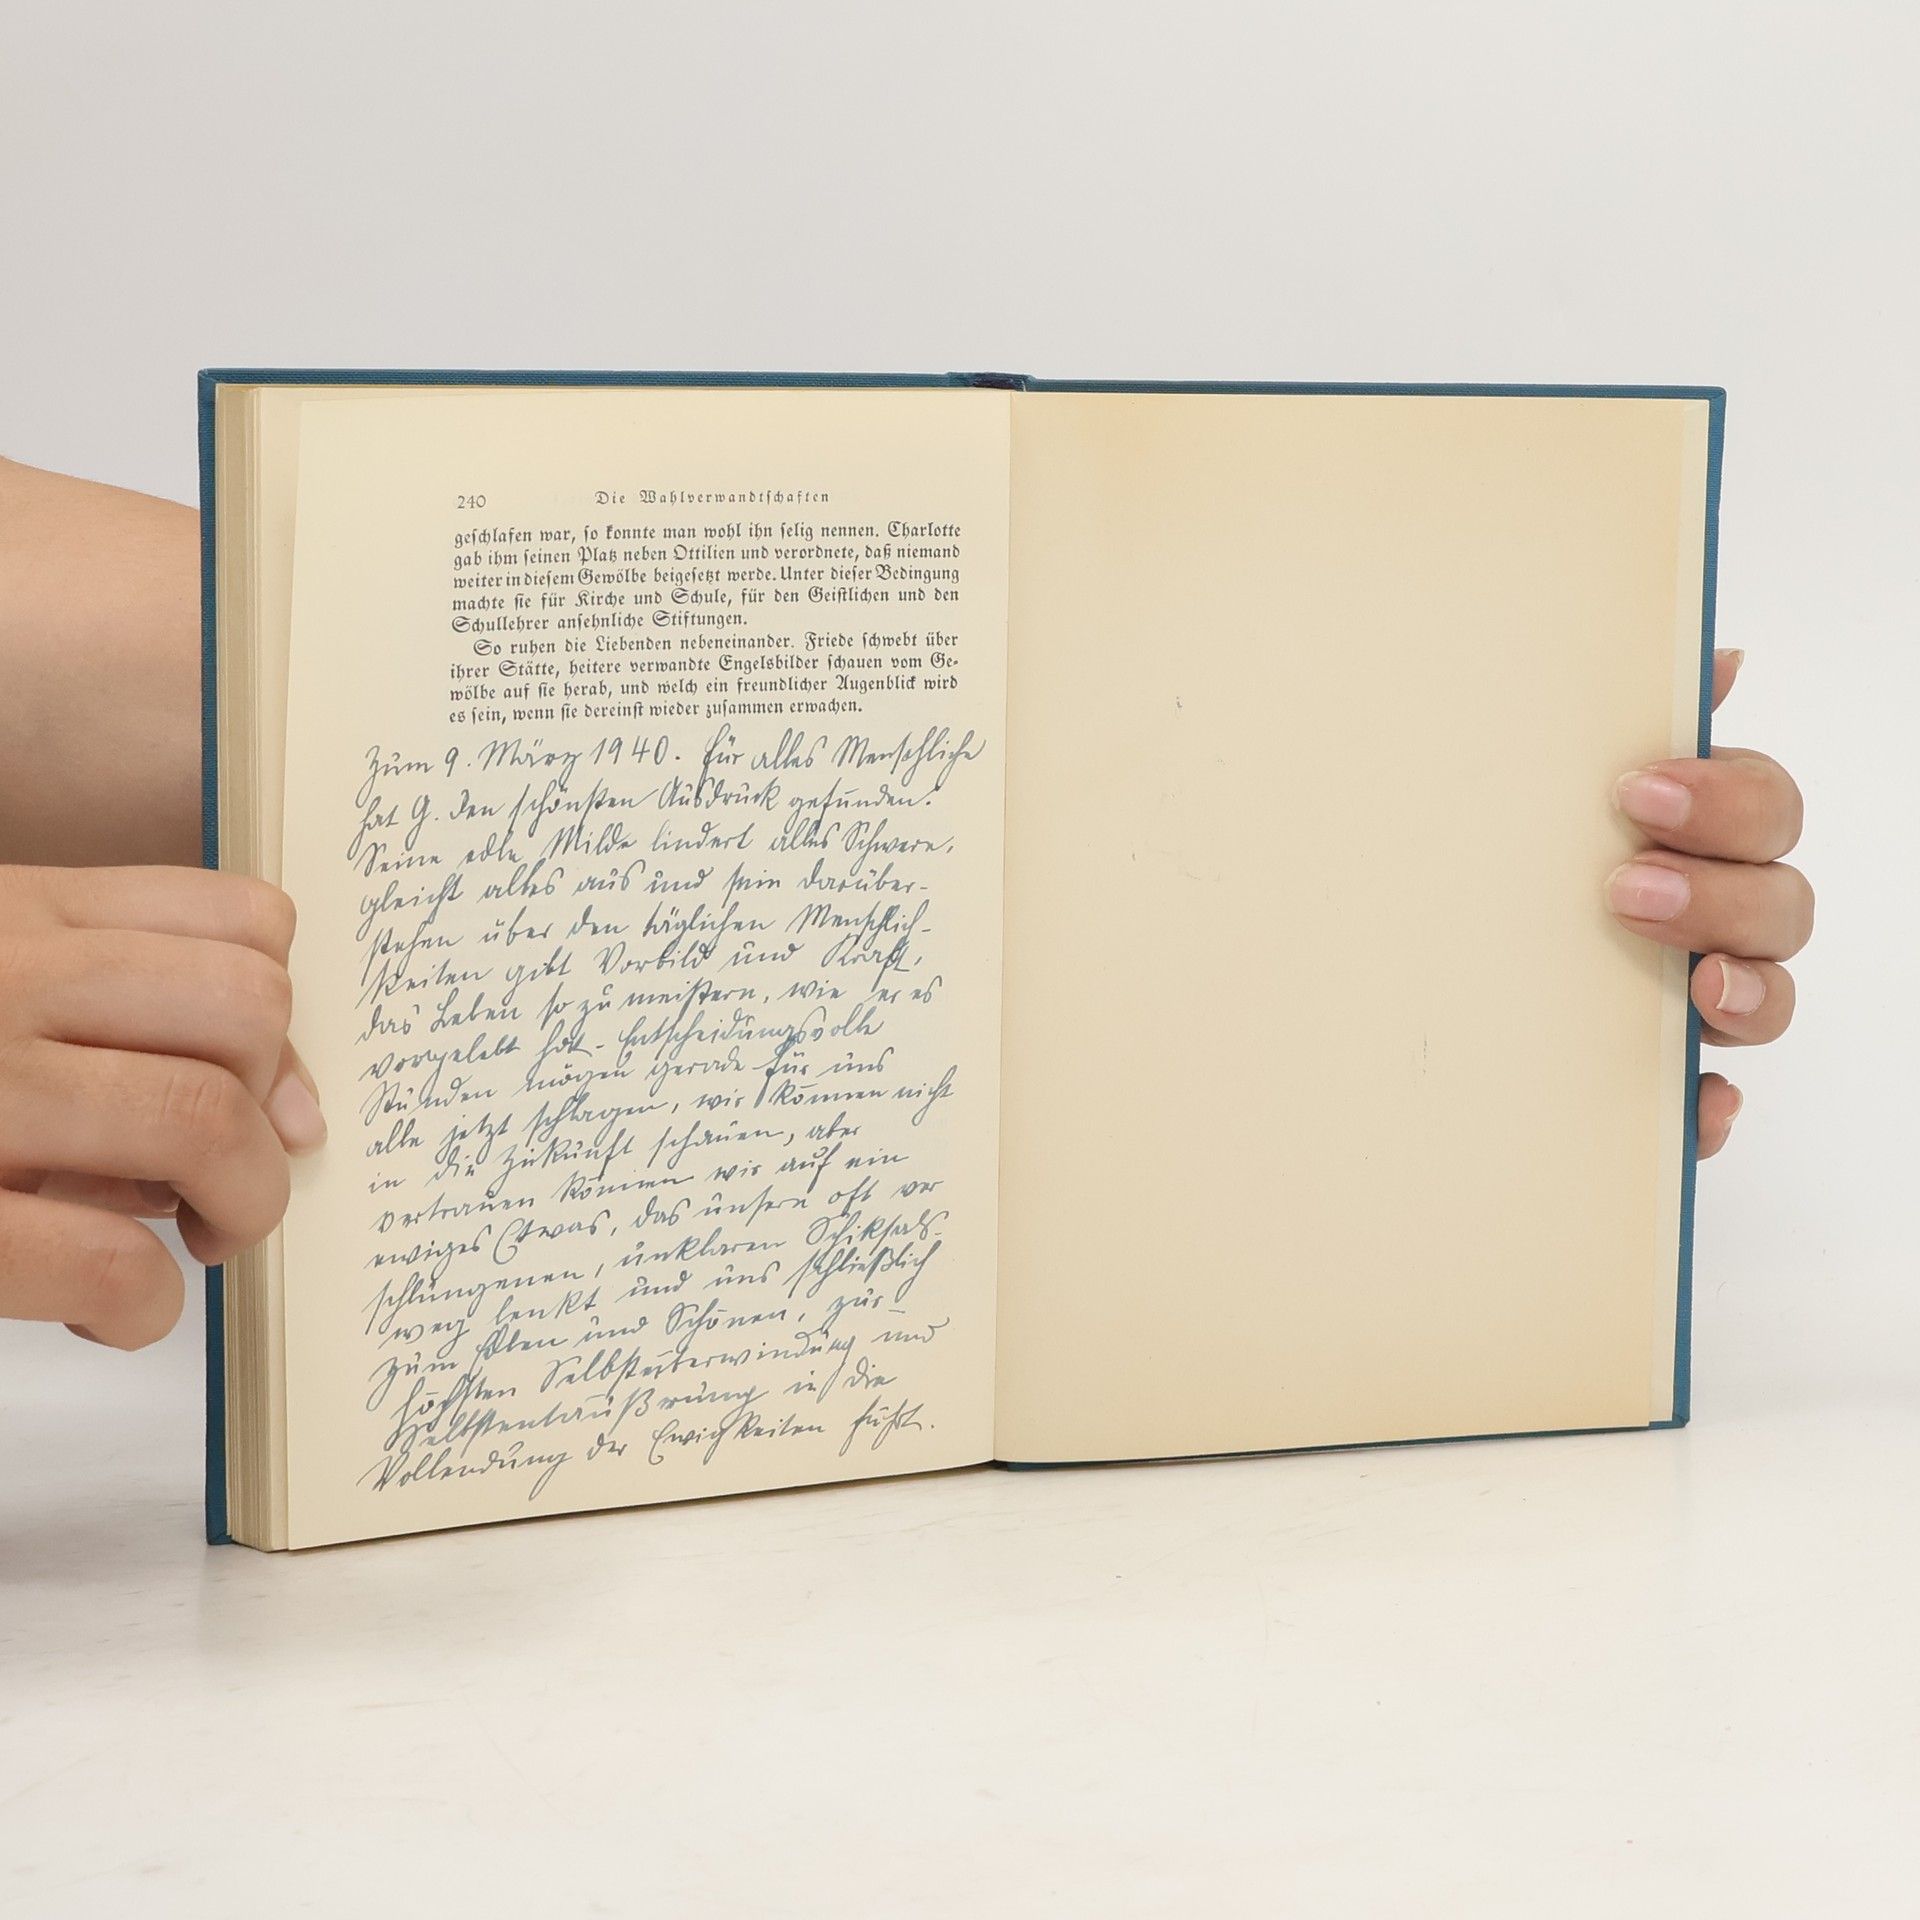 240
Die Wahlverwandtschaften
geschlafen war, so konnte man wohl ihn selig nennen. Charlotte
gab ihm seinen Platz neben Ottilien und verordnete, daß niemand
weiter in diesem Gewölbe beigesetzt werde. Unter dieser Bedingung
machte sie für Kirche und Schule, für den Geistlichen und den
Schullehrer ansehnliche Stiftungen.
So ruhen die Liebenden nebeneinander. Friede schwebt über
ihrer Stätte, heitere verwandte Engelsbilder schauen vom Ge-
wölbe auf sie herab, und welch ein freundlicher Augenblick wird
es sein, wenn sie dereinst wieder zusammen erwachen.
Zum 9. März 1940. Für alles Menschliche
hat G. den schönsten Ausdruck gefunden.
Seine edle Milde lindert alles Schwere,
gleicht alles aus und sein darüber-
stehen über den täglichen Menschlich-
keiten gibt Vorbild und Kraft,
das Leben so zu meistern, wie er es
vorgelebt hat. Entscheidungsvolle
Stunden mögen gerade für uns
alle jetzt schlagen, wir können nicht
in die Zukunft schauen, aber
vertrauen können wir auf ein
ewiges Etwas, das unsern oft ver
schlungenen, unklaren Schiksals-
weg lenkt und uns schließlich
zum Edlen und Schönen, zur
höchsten Selbstüberwindung und
Selbstentäußerung in die
Vollendung der Ewigkeiten führt.